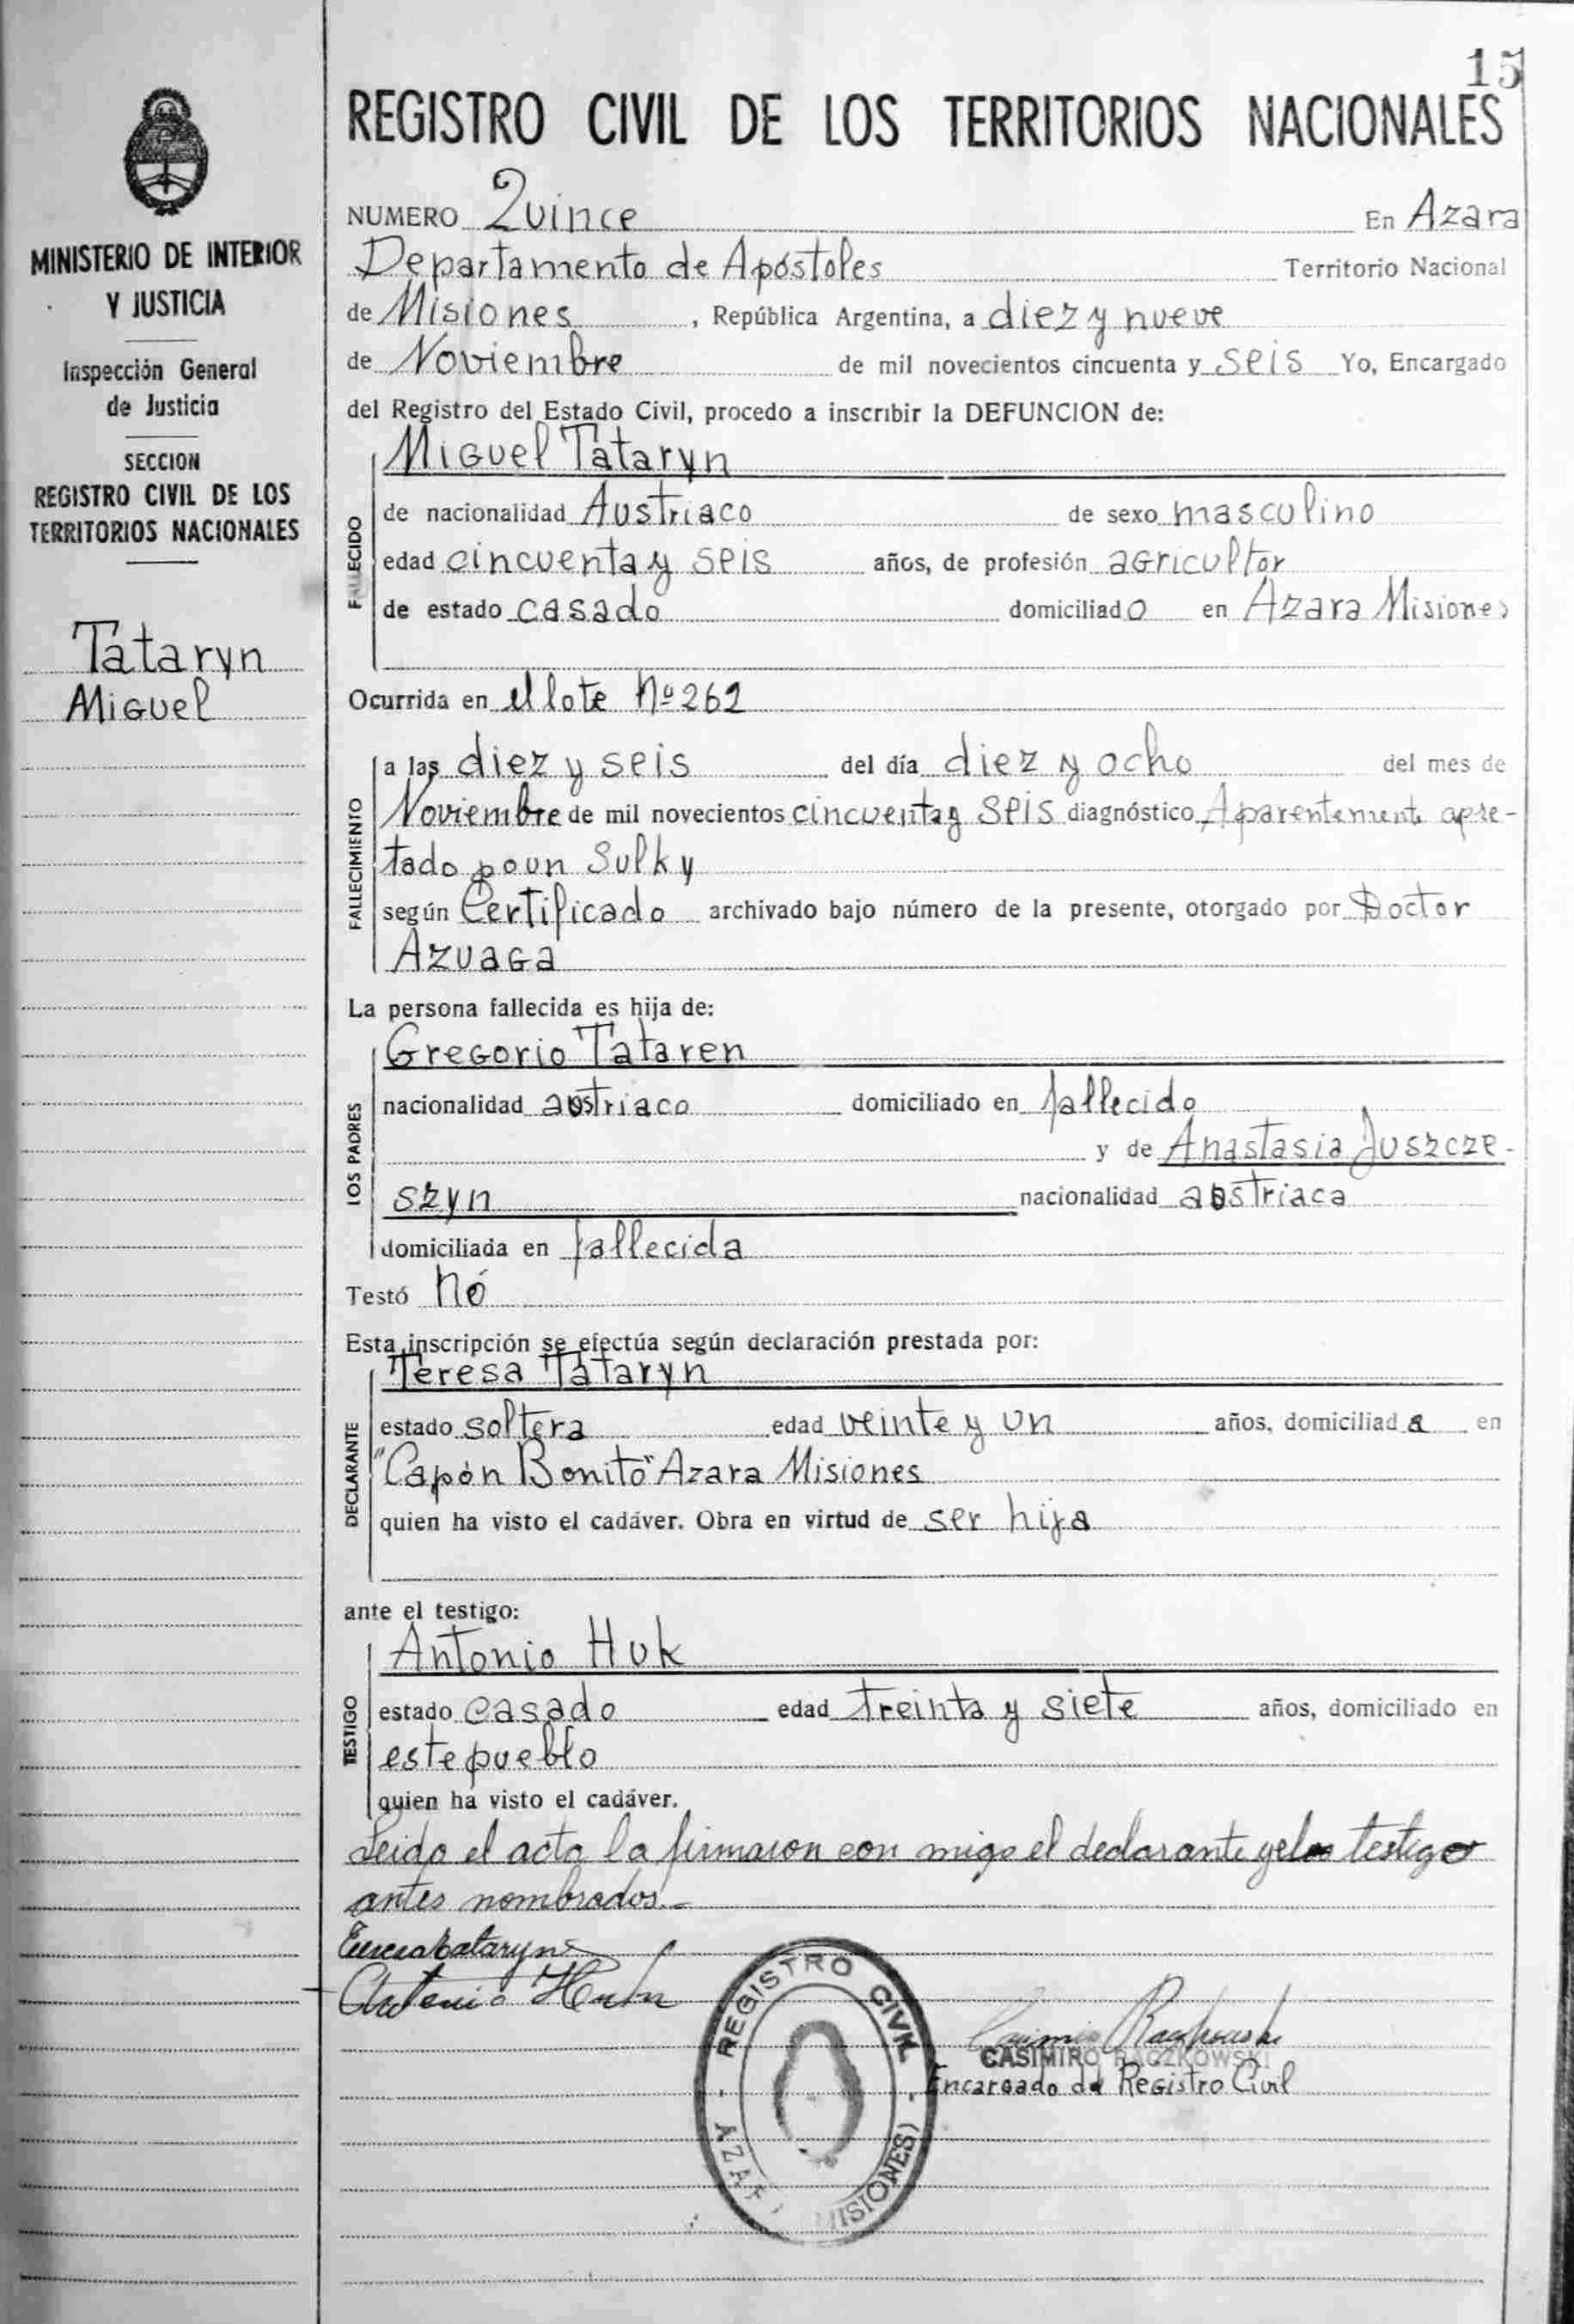 15
REGISTRO CIVIL DE LOS TERRITORIOS NACIONALES
MINISTERIO DE INTERIOR
Y JUSTICIA
Inspección General
de Justicia
SECCION
REGISTRO CIVIL DE LOS
TERRITORIOS NACIONALES
Tataryn
Miguel
NUMERO Quince En Azara
Departamento de Apóstoles Territorio Nacional
de Misiones, República Argentina, a diez y nueve
de Noviembre de mil novecientos cincuenta y seis Yo, Encargado
del Registro del Estado Civil, procedo a inscribir la DEFUNCION de:
FALLECIDO
Miguel Tataryn
de nacionalidad Austriaco de sexo masculino
edad cincuenta y seis años, de profesión agricultor
de estado casado domiciliado en Azara Misiones
Ocurrida en el lote Nº 262
FALLECIMIENTO
a las diez y seis del día diez y ocho del mes de
Noviembre de mil novecientos cincuenta y seis diagnóstico Aparentemente apre-
tado po un Sulky
según Certificado archivado bajo número de la presente, otorgado por Doctor
Azuaga
La persona fallecida es hija de:
LOS PADRES
Gregorio Tataren
nacionalidad austriaco domiciliado en fallecido
y de Anastasia Juszcze-
szyn nacionalidad austriaca
domiciliada en fallecida
Testó nó
Esta inscripción se efectúa según declaración prestada por:
DECLARANTE
Teresa Tataryn
estado soltera edad veinte y un años, domiciliada en
"Capón Bonito" Azara Misiones
quien ha visto el cadáver. Obra en virtud de ser hija
ante el testigo:
TESTIGO
Antonio Huk
estado casado edad treinta y siete años, domiciliado en
este pueblo
quien ha visto el cadáver.
Leido el acta la firmaron con migo el declarante y el testigo
antes nombrados.-
Teresa Tataryn
Antonio Huk
REGISTRO CIVIL
CASIMIRO RACZKOWSKI
Encargado del Registro Civil